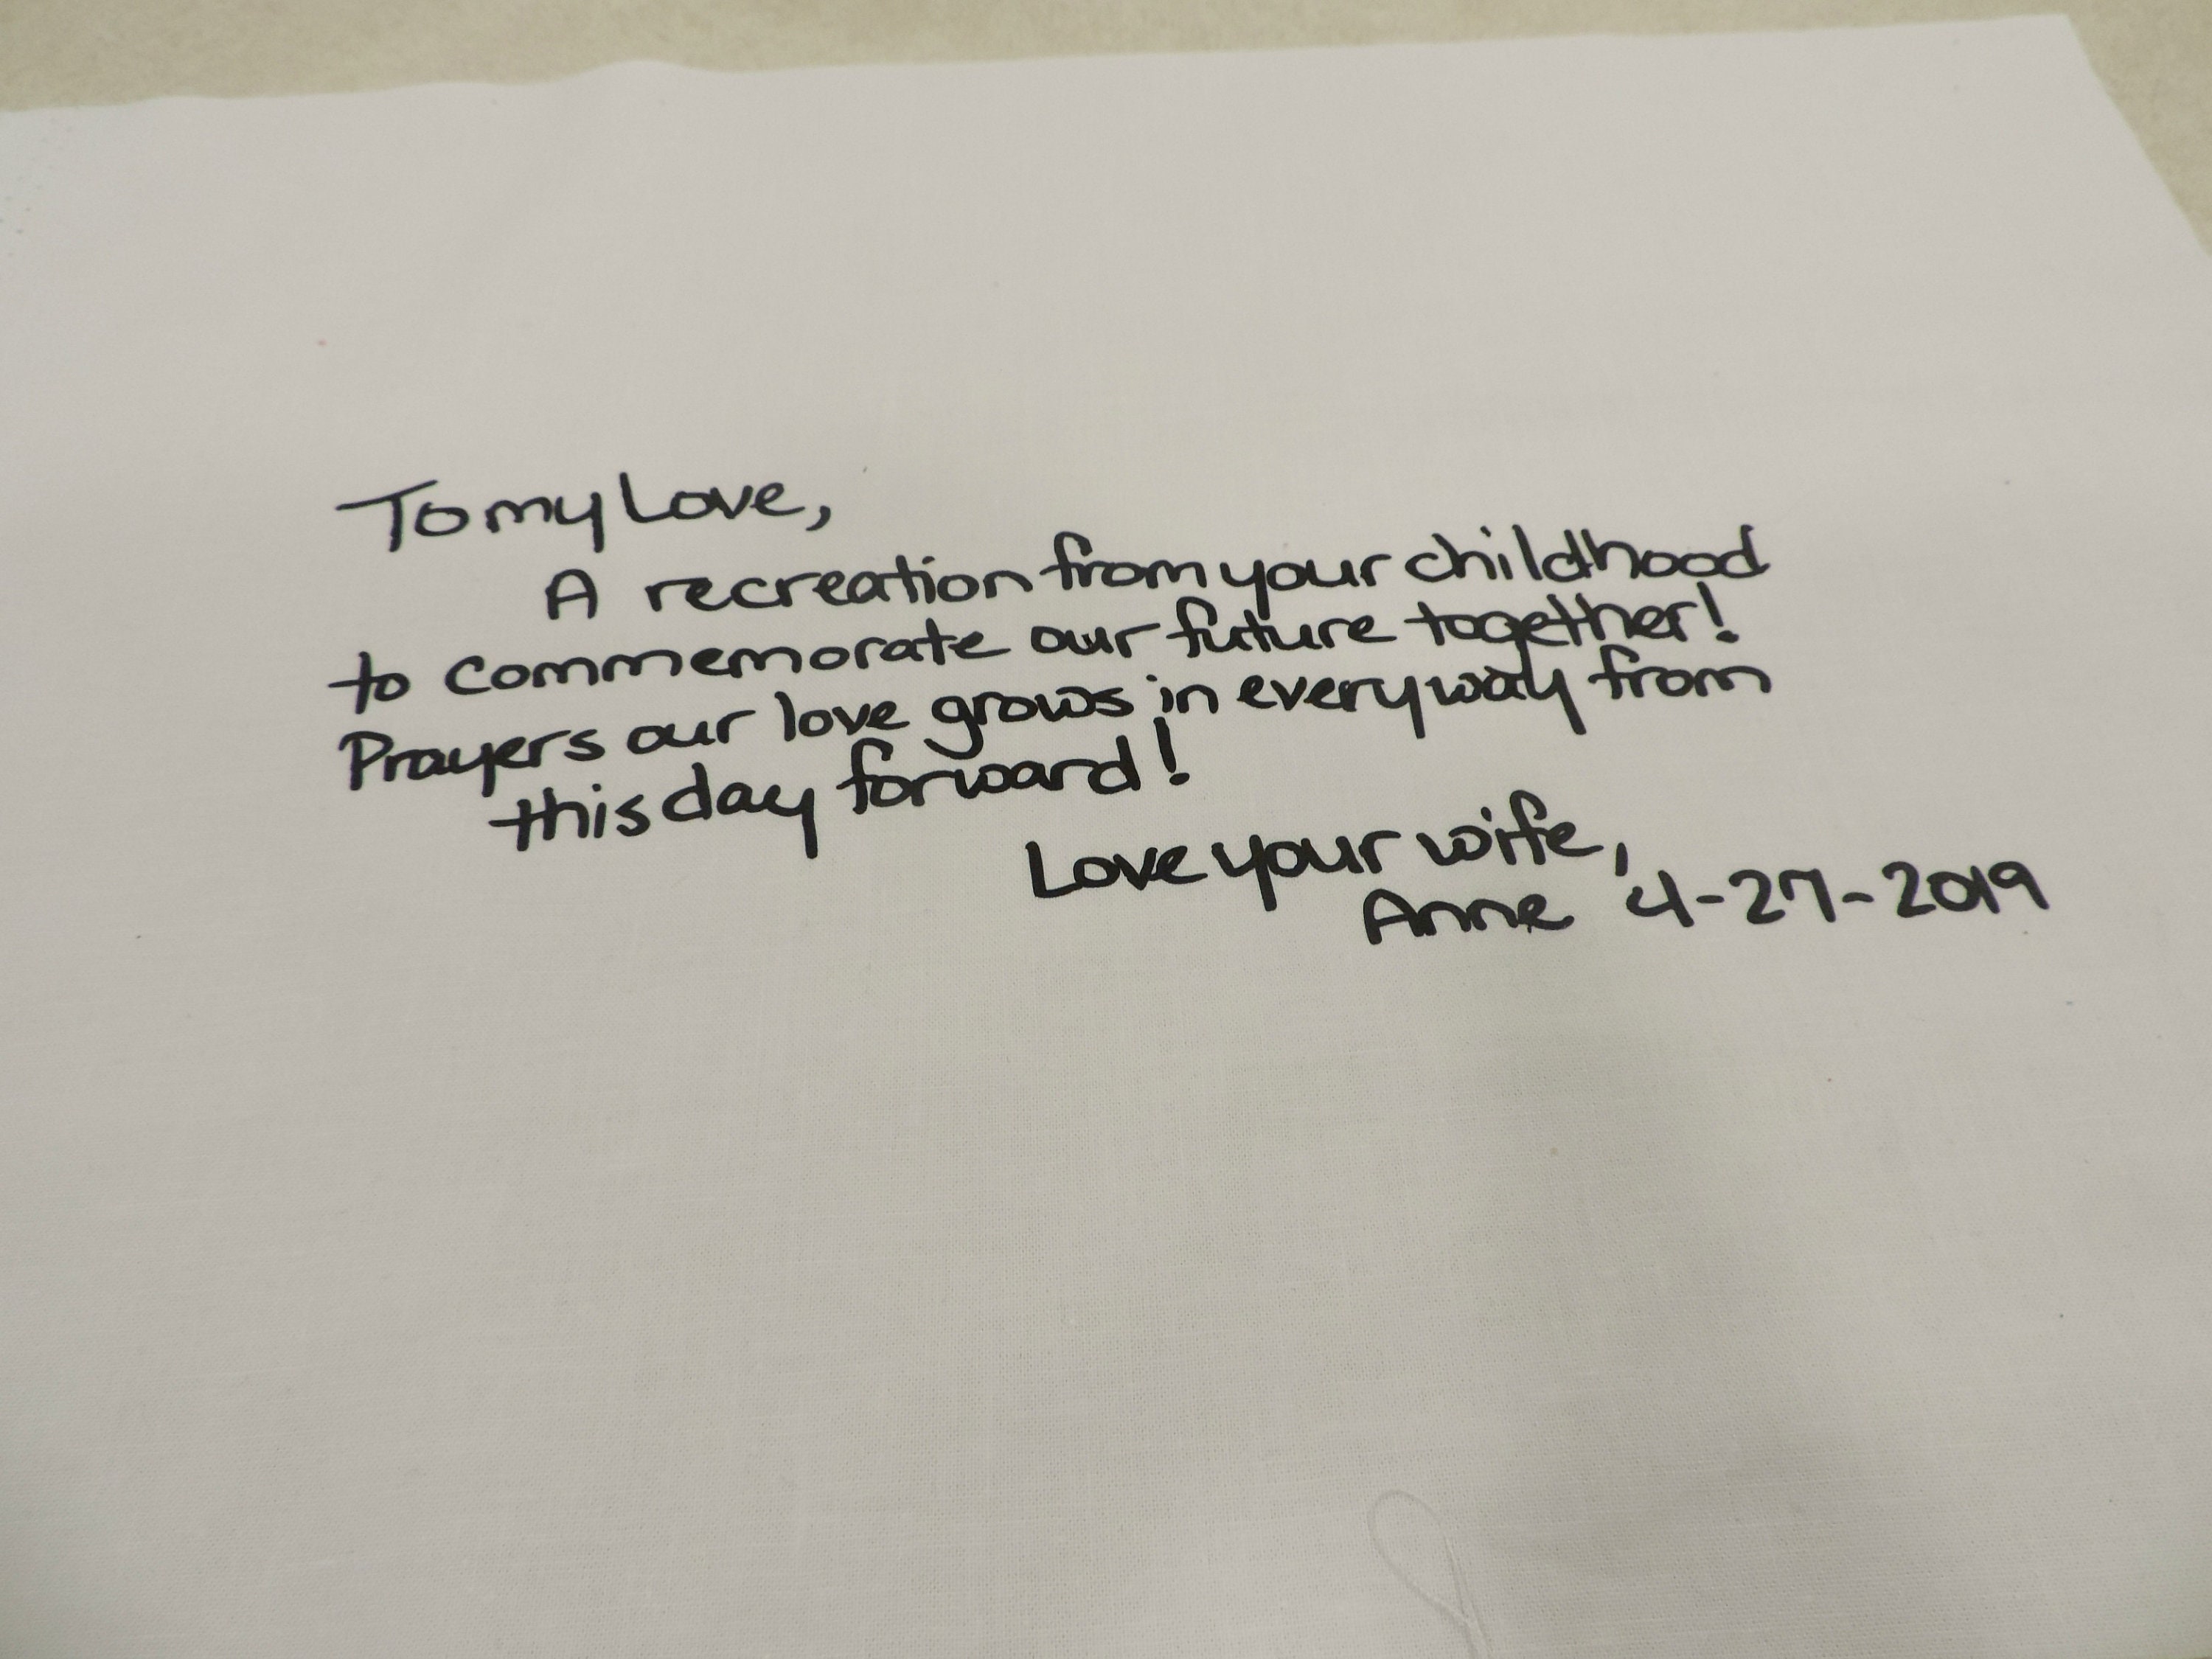 To my Love,
A recreation from your childhood
to commemorate our future together!
Prayers our love grows in every way from
this day forward!
Love your wife,
Anne 4-27-2019